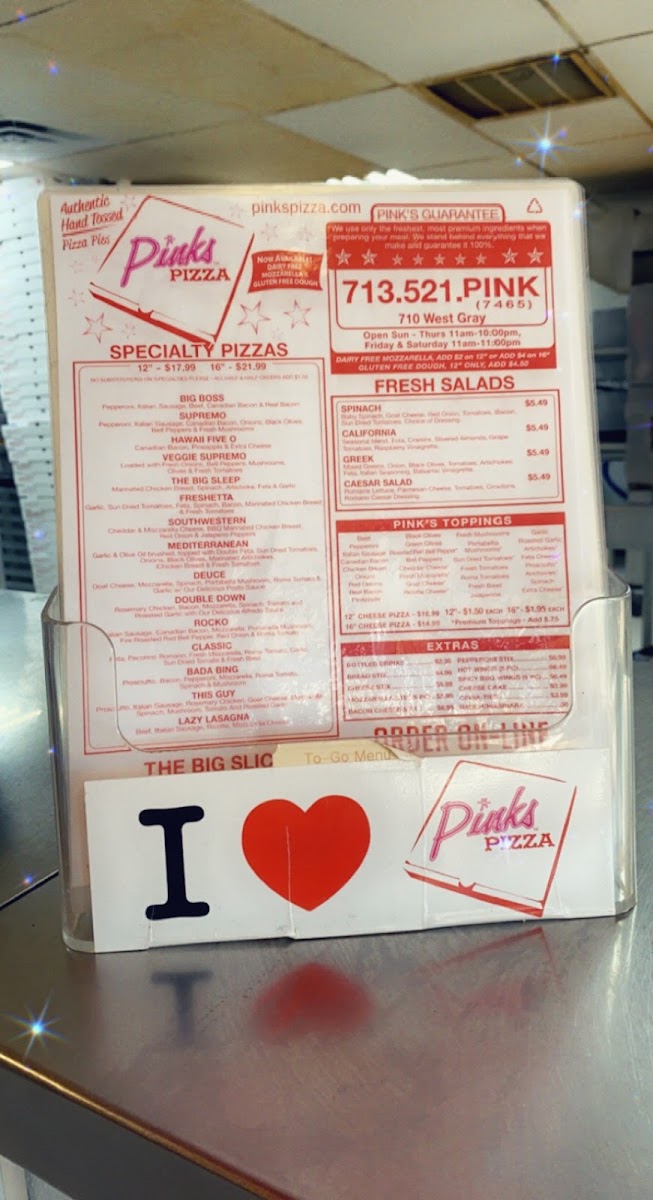 Authentic
Hand Tossed
Pizza Pies
Pinks
PIZZA
pinkspizza.com
NOW AVAILABLE!
DAIRY FREE
MOZZARELLA &
GLUTEN FREE DOUGH
PINK'S GUARANTEE
We use only the freshest, most premium ingredients when
preparing your meal. We stand behind everything that we
make and guarantee it 100%.
713.521.PINK
(7465)
710 West Gray
Open Sun - Thurs 11am-10:00pm,
Friday & Saturday 11am-11:00pm
DAIRY FREE MOZZARELLA, ADD $2 on 12" or ADD $4 on 16"
GLUTEN FREE DOUGH, 12" ONLY, ADD $4.50
SPECIALTY PIZZAS
12" - $17.99 16" - $21.99
BIG BOSS
Pepperoni, Italian Sausage, Beef, Canadian Bacon & Real Bacon
SUPREMO
Pepperoni, Italian Sausage, Canadian Bacon, Onions, Black Olives,
Bell Peppers & Fresh Mushrooms
HAWAII FIVE O
Canadian Bacon, Pineapple & Extra Cheese
VEGGIE SUPREMO
Loaded with Fresh Onions, Bell Peppers, Mushrooms,
Olives & Fresh Tomatoes
THE BIG SLEEP
Marinated Chicken Breast, Spinach, Artichoke, Feta & Garlic
FRESHETTA
Garlic, Sun Dried Tomatoes, Feta, Spinach, Bacon, Marinated Chicken Breast
& Fresh Tomatoes
SOUTHWESTERN
Cheddar & Mozzarella Cheese, BBQ Marinated Chicken Breast,
Red Onion & Jalapeno Peppers
MEDITERRANEAN
Garlic & Olive Oil brushed, topped with Double Feta, Sun Dried Tomatoes,
Onions, Black Olives, Marinated Artichokes,
Chicken Breast & Fresh Tomatoes
DEUCE
Goat Cheese, Mozzarella, Spinach, Portabella Mushroom, Roma Tomato &
Garlic w/ Our Delicious Pesto Sauce
DOUBLE DOWN
Rosemary Chicken, Bacon, Mozzarella, Spinach, Tomato and
Roasted Garlic with Our Delicious Alfredo Sauce
ROCKO
Italian Sausage, Canadian Bacon, Mozzarella, Portabella Mushroom,
Fire Roasted Red Bell Pepper, Red Onion & Roma Tomato
CLASSIC
Feta, Pecorino Romano, Fresh Mozzarella, Roma Tomato, Garlic,
Sun Dried Tomato & Fresh Basil
BADA BING
Prosciutto, Bacon, Pepperoni, Mozzarella, Roma Tomato,
Spinach & Mushroom
THIS GUY
Prosciutto, Italian Sausage, Rosemary Chicken, Goat Cheese,
Spinach, Mushroom, Tomato And Roasted Garlic
LAZY LASAGNA
Beef, Italian Sausage, Ricotta,
THE BIG SLIC
FRESH SALADS
SPINACH $5.49
Baby Spinach, Goat Cheese, Red Onion, Tomatoes, Bacon,
Sun Dried Tomatoes, Choice of Dressing
CALIFORNIA $5.49
Seasonal blend, Feta, Craisins, Slivered Almonds, Grape
Tomatoes, Raspberry Vinaigrette
GREEK $5.49
Mixed Greens, Onion, Black Olives, Tomatoes, Artichokes
Feta, Italian Seasoning, Balsamic Vinaigrette
CAESAR SALAD $5.49
Romaine Lettuce, Parmesan Cheese, Tomatoes, Croutons,
Romano Caesar Dressing
PINK'S TOPPINGS
Beef
Pepperoni
Italian Sausage
Canadian Bacon
Chicken Breast
Onion
Red Onions
Real Bacon
Pineapple
Black Olives
Green Olives
Roasted Red Bell Pepper*
Bell Peppers
Cheddar Cheese*
Goat Cheese*
Ricotta Cheese*
Fresh Mushrooms
Portabella
Mushrooms*
Sun Dried Tomatoes*
Fresh Tomatoes
Roma Tomatoes
Fresh Basil
Jalapenos
Garlic
Roasted Garlic
Artichokes*
Feta Cheese*
Prosciutto*
Anchovies*
Spinach
Extra Cheese*
12" CHEESE PIZZA - 12" - $1.50 EACH 16" - $1.95 EACH
16" CHEESE PIZZA - *Premium Toppings - Add $.75
EXTRAS
BOTTLED DRINKS
BREAD STIX
CHEESE STIX
BACON CHEESE STIX
PEPPERONI STIX
HOT WINGS
SPICY BBQ WINGS
CHEESE CAKE
ORDER ON-LINE
To-Go Menu
I
Pinks
PIZZA